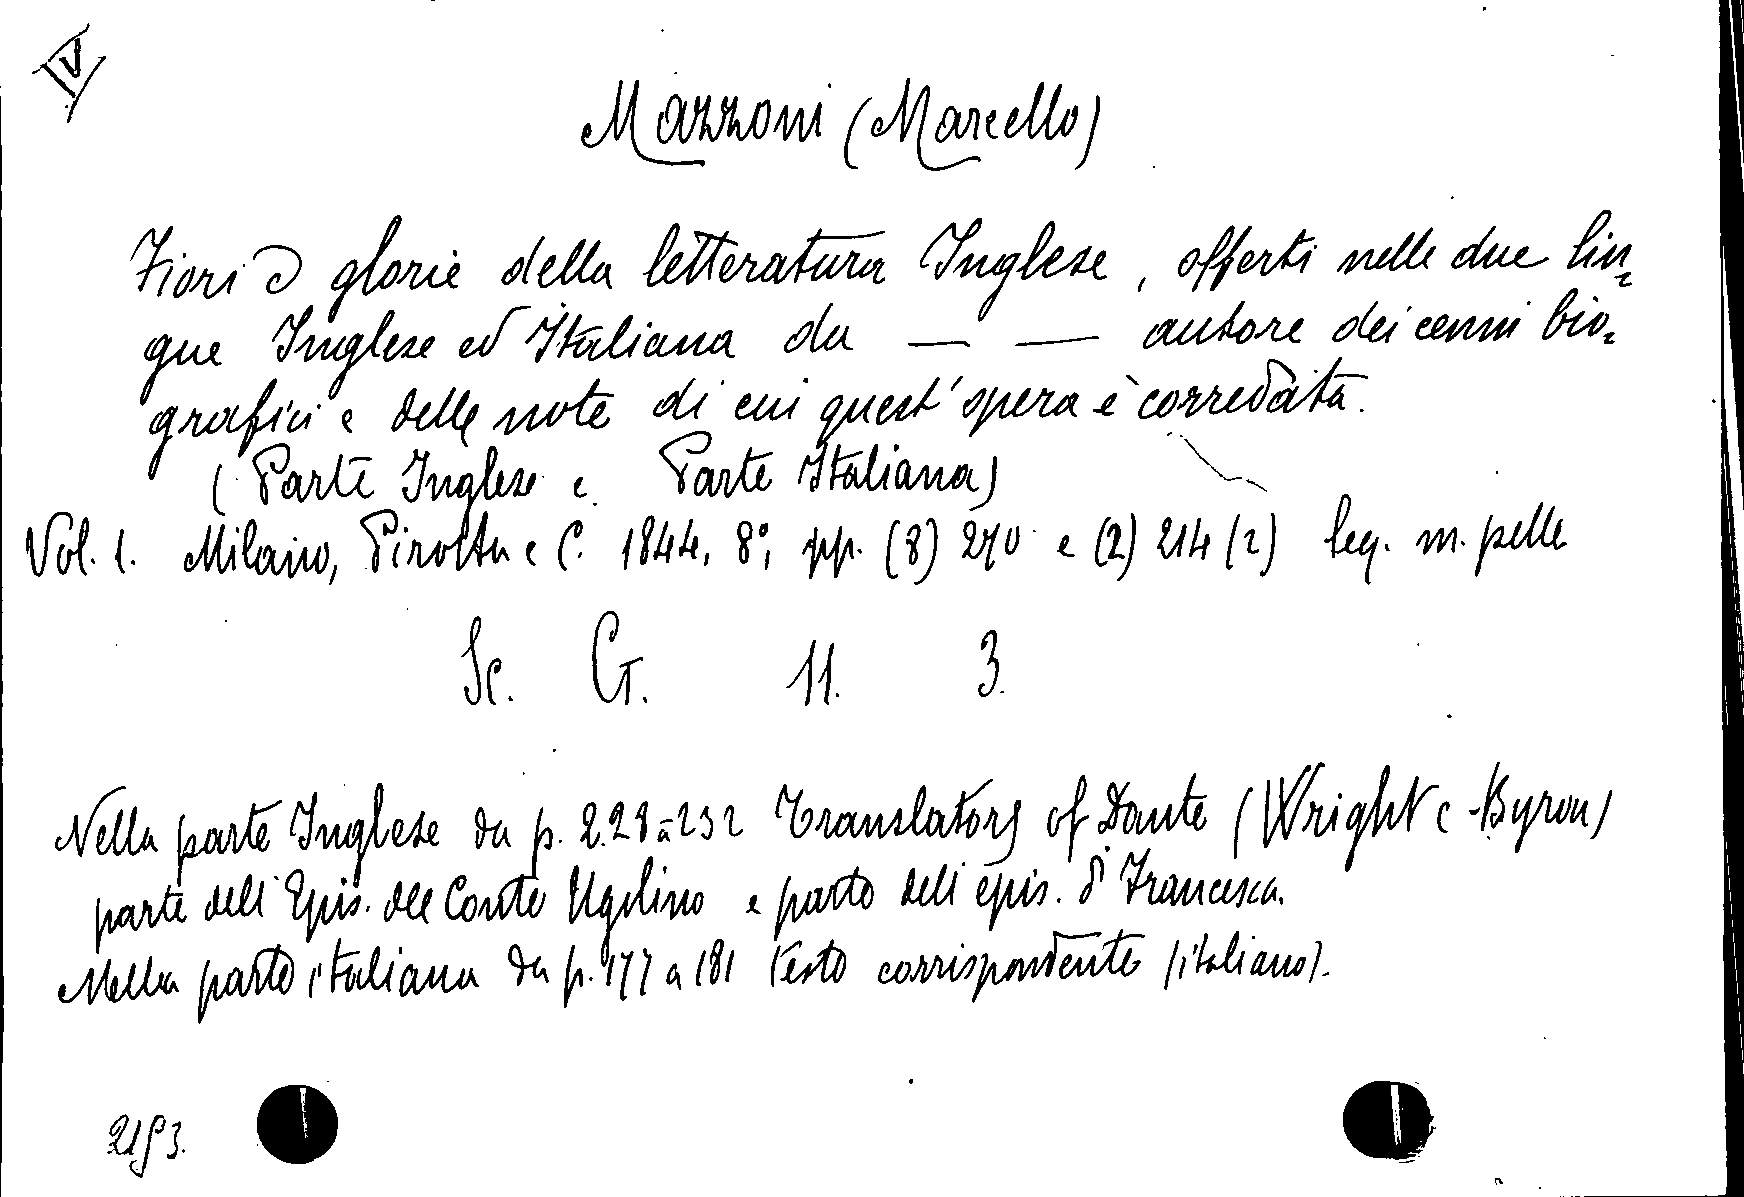 IV
Mazzoni (Marcello)
Fiori e glorie della letteratura Inglese, offerti nelle due lin=
gue Inglese ed Italiana da — — autore dei cenni bio=
grafici e delle note di cui quest'opera è corredata.
(Parte Inglese e Parte Italiana)
Vol. 1. Milano, Pirotta e C. 1844, 8°; pp. (8) 270 e (2) 214 (2) leg. m. pelle
Sc. G. 11. 3.
Nella parte Inglese da p. 228 a 232 Translators of Dante (Wright e Byron)
parte dell'Epis. del Conte Ugolino e parte dell'epis. di Francesca.
Nella parte italiana da p. 177 a 181 testo corrispondente (italiano).